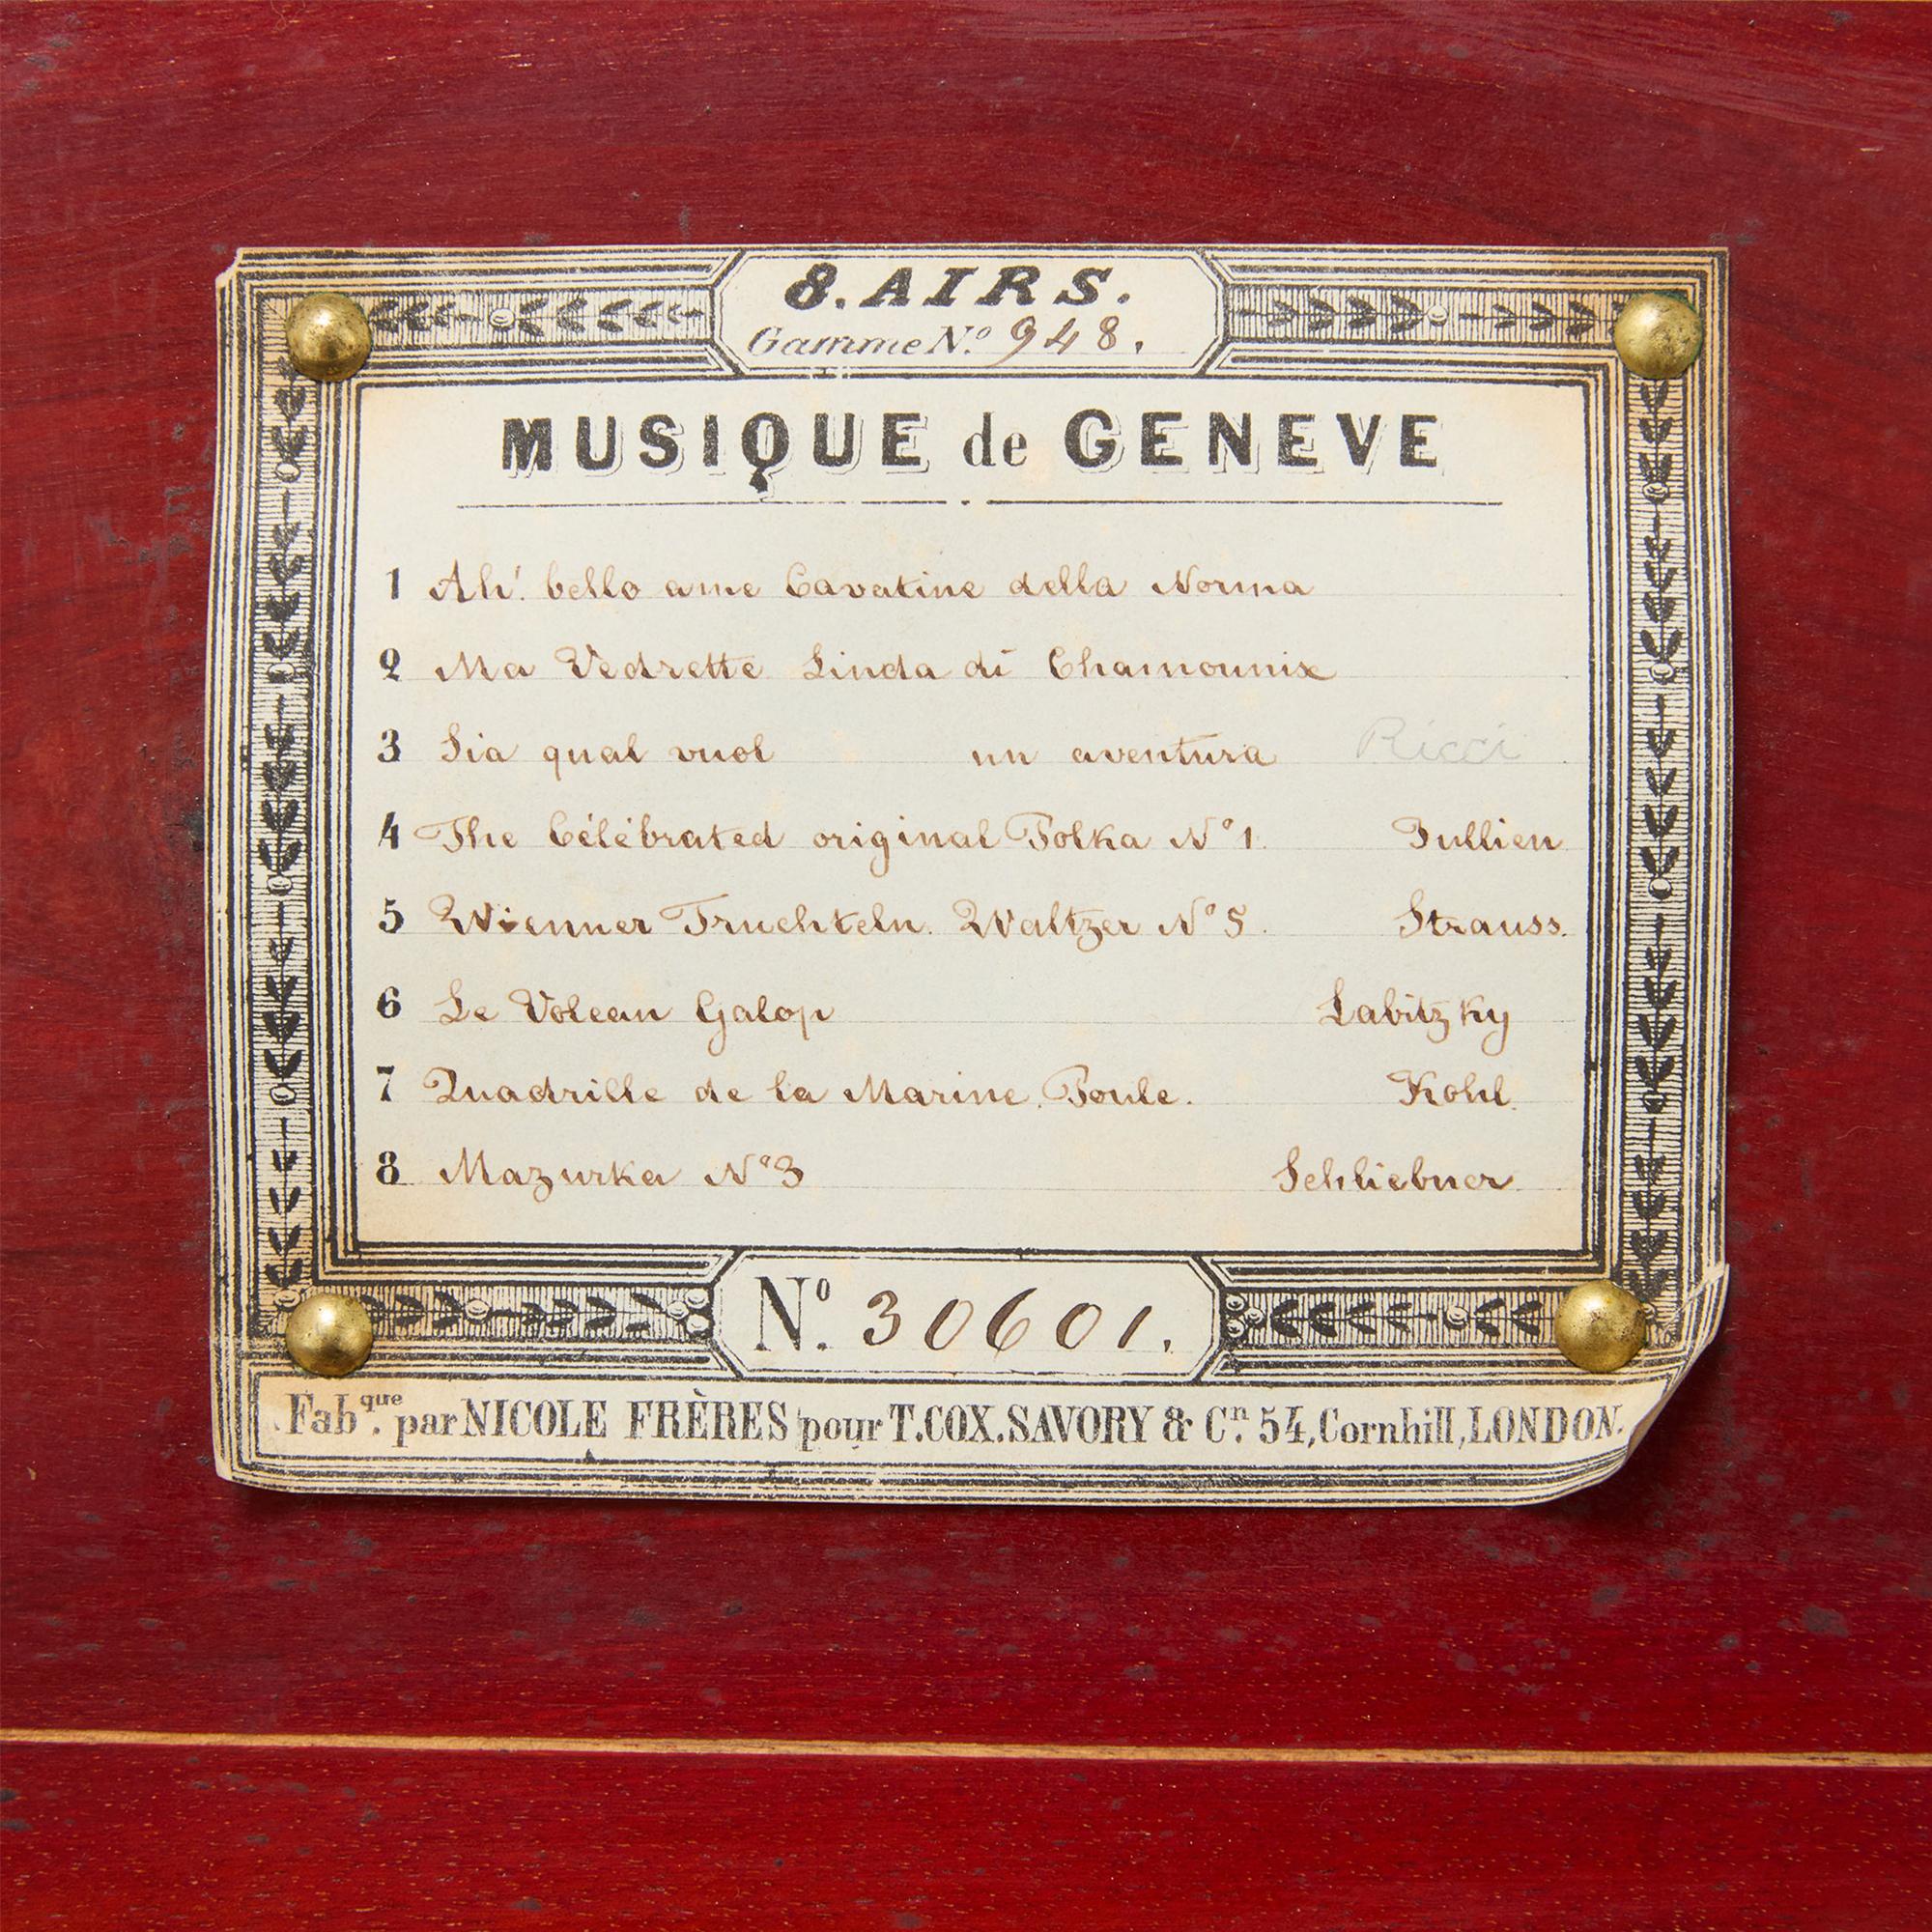 8. AIRS.
Gamme Nº 948.
MUSIQUE de GENEVE
1 Ah! bello ame Cavatine della Norma
2 Ma Vedrette Linda di Chamounix
3 Sia qual vuol un aventura Ricci
4 The Célébrated original Polka Nº 1. Jullien
5 Wienner Fruchteln. Waltzer Nº 5. Strauss.
6 Le Volcan Galop Labitzky
7 Quadrille de la Marine. Poule. Kohl.
8 Mazurka Nº 3 Schliebner
Nº. 30601.
Fabque. par NICOLE FRÈRES pour T.COX.SAVORY & Cn. 54, Cornhill, LONDON.